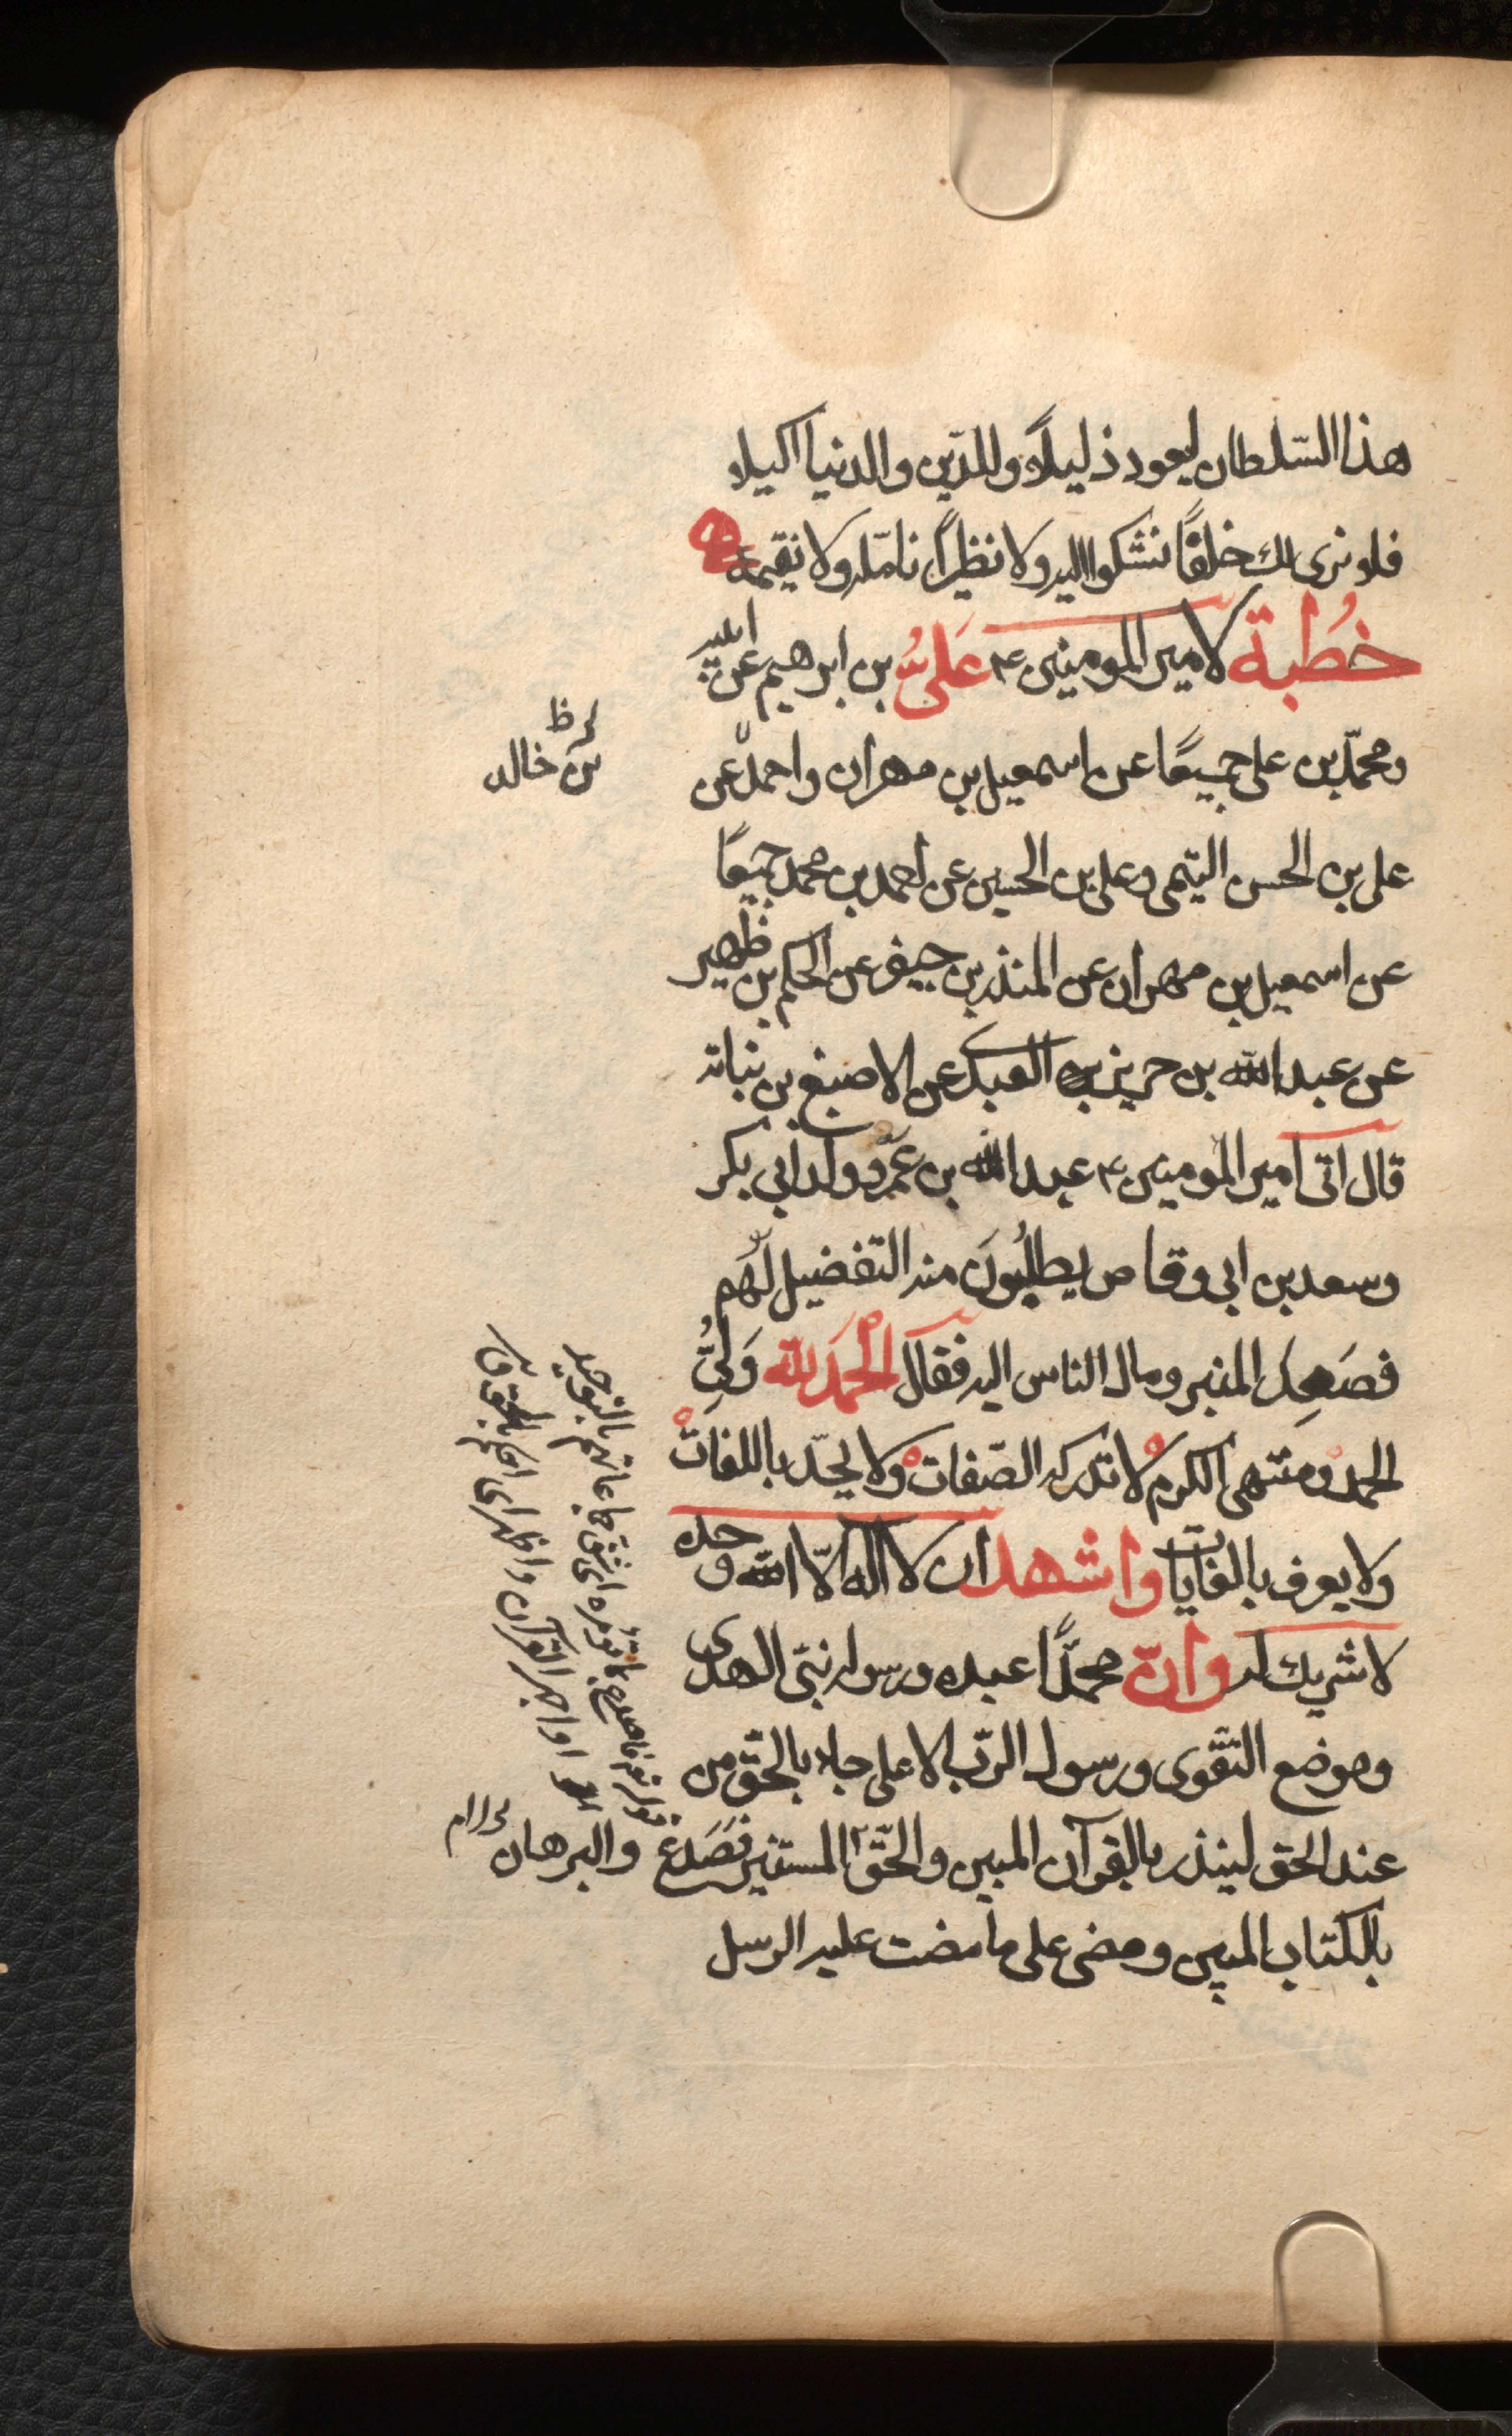 هذا السّلطان ليعود ذليلاً وللدّين والدنيا اكيلا
فلا نرى لك خلفًا نشكوا اليه ولا نظيرًا نامّله ولا نقيمه
خُطبة لامير المومنين ع عَليُّ بن ابرهيم عن ابيه
ومحمّد بن على جميعًا عن اسمعيل بن مهران واحمد عن
بن خالد
على بن الحسن التيمى وعلى بن الحسين عن احمد بن محمد جميعًا
عن اسمعيل بن مهران عن المنذر بن جيفر عن الحكم بن ظهير
عن عبد الله بن حريز العبدى عن الاصبغ بن نباته
قال اتى امير المومنين ع عبد الله بن عمر وولد ابي بكر
وسعد بن ابى وقاص يطلبُونَ منه التفضيل لَهُم
فصَعِدَ المنبر ومال الناس اليه فقال الْحَمدُ لله وَلىُّ
الحمد ومنتهى الكرم لا تدركه الصّفات ولا يحدّ باللغات
ولا يعرف بالغايات واشهد ان لا اله الّا الله وحده
لا شريك له وانّ محمّدًا عبده ورسوله نبىّ الهدى
وموضع التقوى ورسول الرّب الاعلى جاء بالحقّ من
عند الحق لينذر بالقرآن المبين والحّق المستنير فصَدَع
والبرهان
بالكتاب المبين ومضى على ما مضت عليه الرسل
قوله تعالى فاصدع بما تؤمر اى شق جماعاتهم بالتوحيد
او اجهر بالقرآن واظهر او احكم بالحق